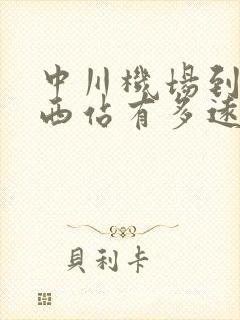 中川機場到
西佔有多速
貝利卡